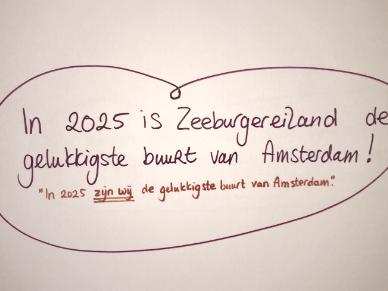 In 2025 is Zeeburgereiland de
gelukkigste buurt van Amsterdam!
"In 2025 zijn wij de gelukkigste buurt van Amsterdam."